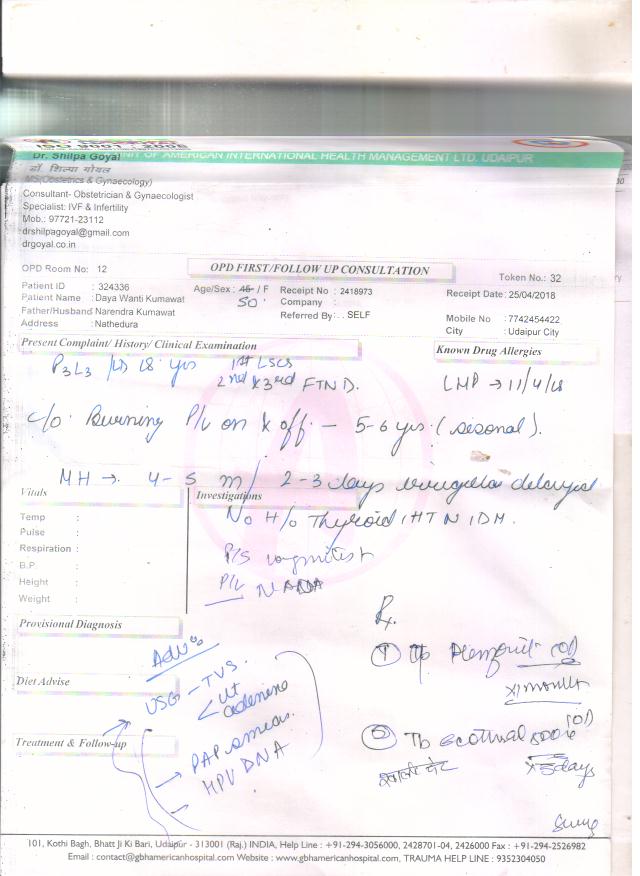 ISO 9001 : 2008
UNIT OF AMERICAN INTERNATIONAL HEALTH MANAGEMENT LTD. UDAIPUR
Dr. Shilpa Goyal
डॉ. शिल्पा गोयल
MS(Obstetrics & Gynaecology)
Consultant- Obstetrician & Gynaecologist
Specialist: IVF & Infertility
Mob.: 97721-23112
drshilpagoyal@gmail.com
drgoyal.co.in
OPD Room No: 12
OPD FIRST/FOLLOW UP CONSULTATION
Token No.: 32
Patient ID : 324336
Age/Sex : 45 / F
50
Receipt No : 2418973
Receipt Date : 25/04/2018
Patient Name : Daya Wanti Kumawat
Company :
Father/Husband : Narendra Kumawat
Referred By : . . SELF
Mobile No : 7742454422
Address : Nathedura
City : Udaipur City
Present Complaint/ History/ Clinical Examination
Known Drug Allergies
P3L3 18 yrs
1st LSCS
2nd & 3rd FTND.
LMP → 11/4/18
c/o Burning P/V on & off - 5-6 yrs (sesonal).
MH → 4-5 m/ 2-3 days delayed
Vitals
Investigations
No H/o Thyroid, HTN, DM.
Temp :
Pulse :
Respiration :
B.P. :
Height :
Weight :
P/S
P/V
Provisional Diagnosis
Rx.
Adv
Diet Advise
USG - TVS.
Ut
① (OD)
x 1 month
Treatment & Follow-up
→ PAP smear.
- HPV DNA
② Tb (OD)
x 3 days
101, Kothi Bagh, Bhatt Ji Ki Bari, Udaipur - 313001 (Raj.) INDIA, Help Line : +91-294-3056000, 2428701-04, 2426000 Fax : +91-294-2526982
Email : contact@gbhamericanhospital.com Website : www.gbhamericanhospital.com, TRAUMA HELP LINE : 9352304050